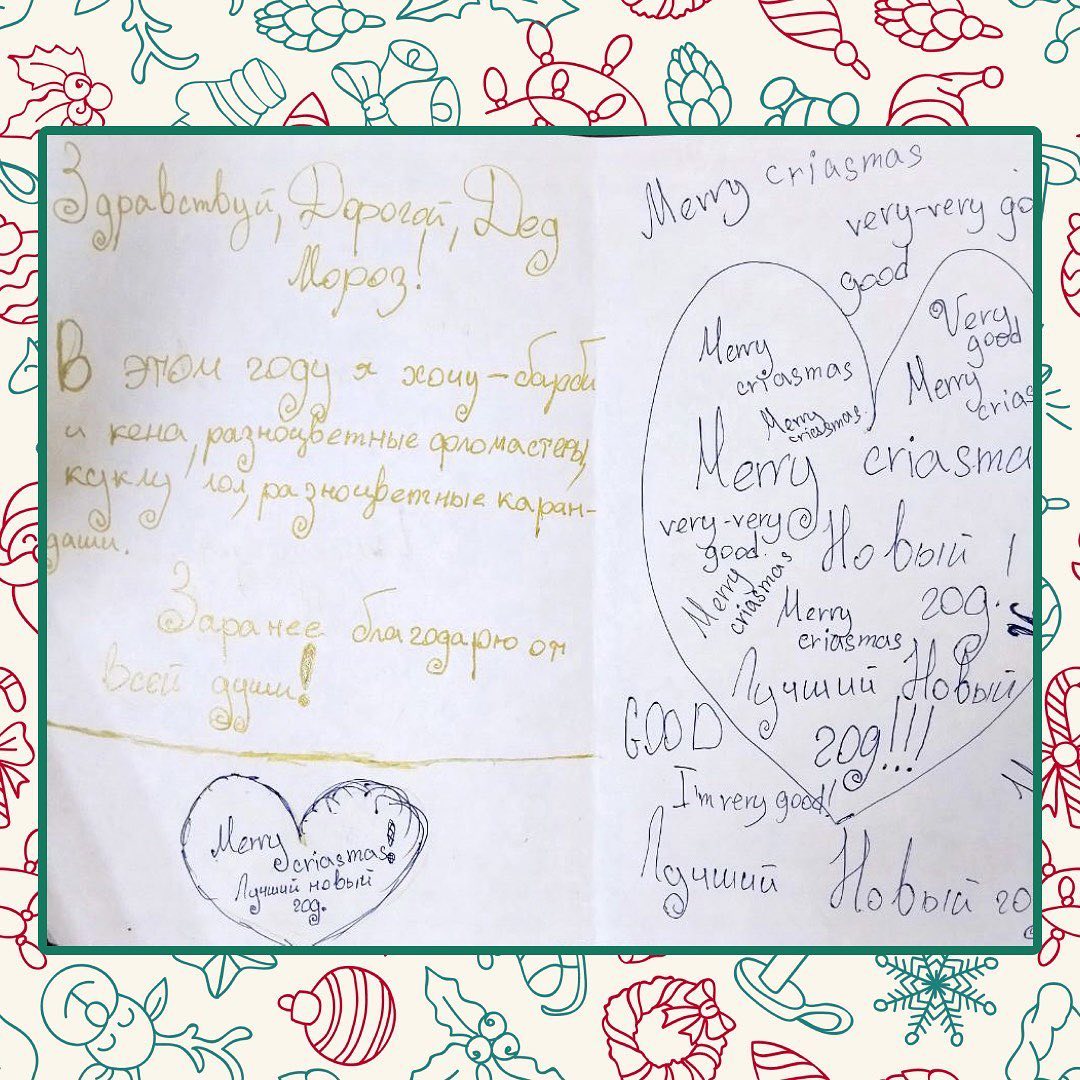 Здравствуй, Дорогой, Дед
Мороз!
В этом году я хочу - барби
и кена, разноцветные фломастеры,
куклу лол, разноцветные каран-
даши.
Заранее благодарю от
всей души!
Merry
criasmas!
Лучший новый
год.
Merry criasmas
very-very go
good
Very
good
Merry
criasmas
Merry
crias
Merry
criasmas.
Merry criasma
very-very
good.
Новый
год.
Merry
criasmas
Merry
criasmas
Лучший Новый
год!!!
GOOD
I'm very good!
Лучший Новый го